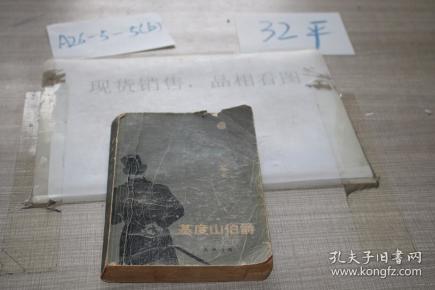 A26-5-5(b)
32平
现货销售，品相看图
基度山伯爵
孔夫子旧书网
www.kongfz.com